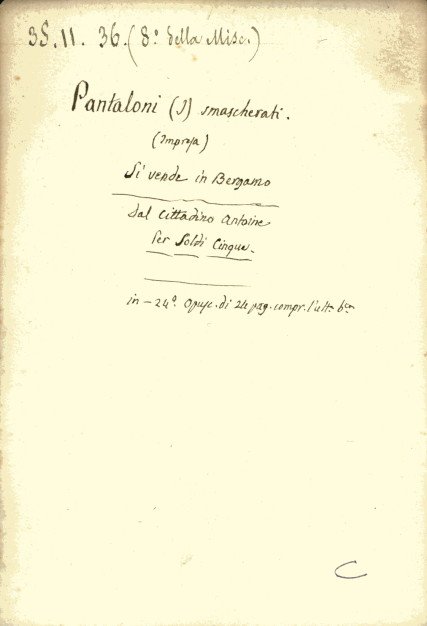 35. 11. 36. (8º della Misc.)
Pantaloni (I) smascherati.
(Impresa)
Si vende in Bergamo
dal Cittadino Antoine
Per Soldi Cinque.
in-24º Opusc. di 24 pag. compr. l'ult. bca
C